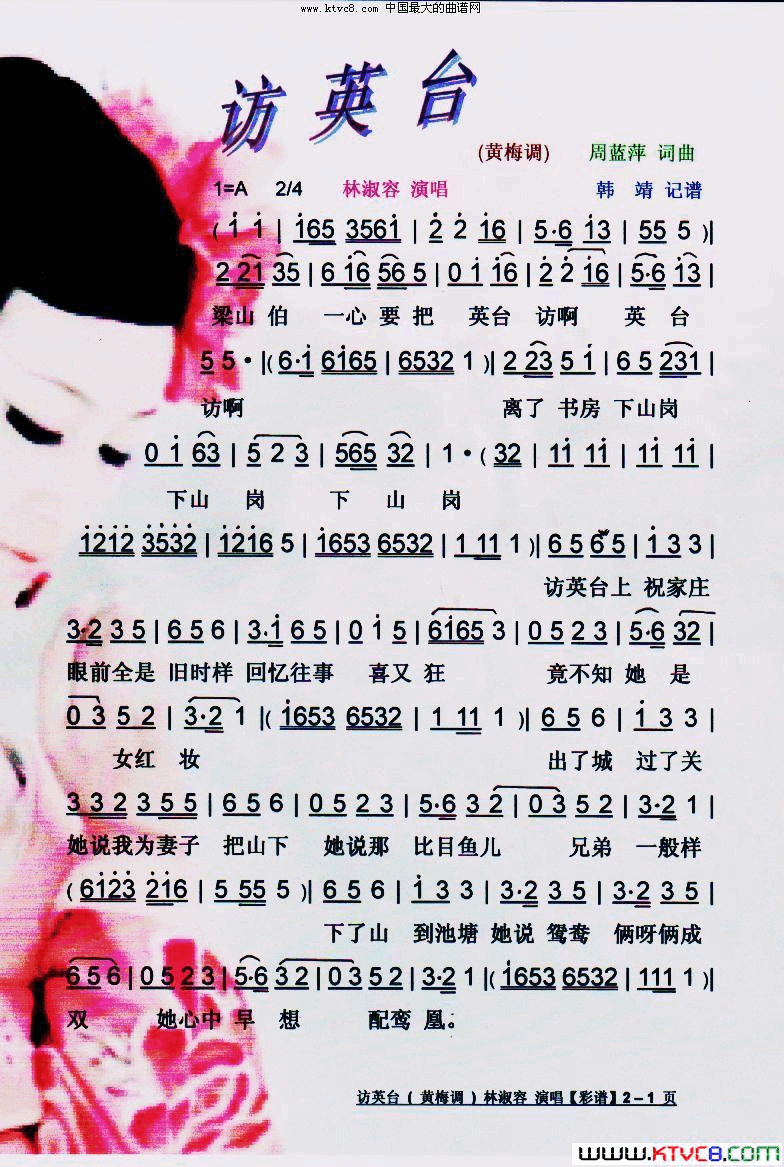 www.ktvc8.com 中国最大的曲谱网
访英台
(黄梅调) 周蓝萍 词曲
1=A 2/4 林淑容 演唱 韩 靖 记谱
( i i | i65 3561 | 2 2 i6 | 5·6 i3 | 55 5 )|
2 21 35 | 6 i6 56 5 | 0 i i6 | 2 2 i6 | 5·6 i3 |
梁山 伯 一心 要 把 英台 访啊 英 台
5 5· |( 6·i 6i65 | 6532 1 )| 2 23 5 i | 6 5 231 |
访啊 离了 书房 下山岗
0 i 63 | 5 2 3 | 565 32 | 1·( 32 | 11 11 | 11 11 |
下山 岗 下 山 岗
1212 3532 | 1216 5 | i653 6532 | 1 11 1 )| 6 5 6 5 | i 3 3 |
访英台上 祝家庄
3·2 3 5 | 6 5 6 | 3·i 6 5 | 0 i 5 | 6i65 3 | 0 5 2 3 | 5·6 32 |
眼前全是 旧时样 回忆往事 喜又 狂 竟不知 她 是
0 3 5 2 | 3·2 1 |( i653 6532 | 1 11 1 )| 6 5 6 | i 3 3 |
女红 妆 出了城 过了关
3 3 2 3 5 5 | 6 5 6 | 0 5 2 3 | 5·6 3 2 | 0 3 5 2 | 3·2 1 |
她说我为妻子 把山下 她说那 比目鱼儿 兄弟 一般样
( 6123 216 | 5 55 5 )| 6 5 6 | i 3 3 | 3·2 3 5 | 3·2 3 5 |
下了山 到池塘 她说 鸳鸯 俩呀俩成
6 5 6 | 0 5 2 3 | 5·6 3 2 | 0 3 5 2 | 3·2 1 |( i653 6532 | 111 1 )|
双 她心中 早 想 配鸾 凰。
访英台 ( 黄梅调 ) 林淑容 演唱【彩谱】2－1 页
www.KTVC8.com